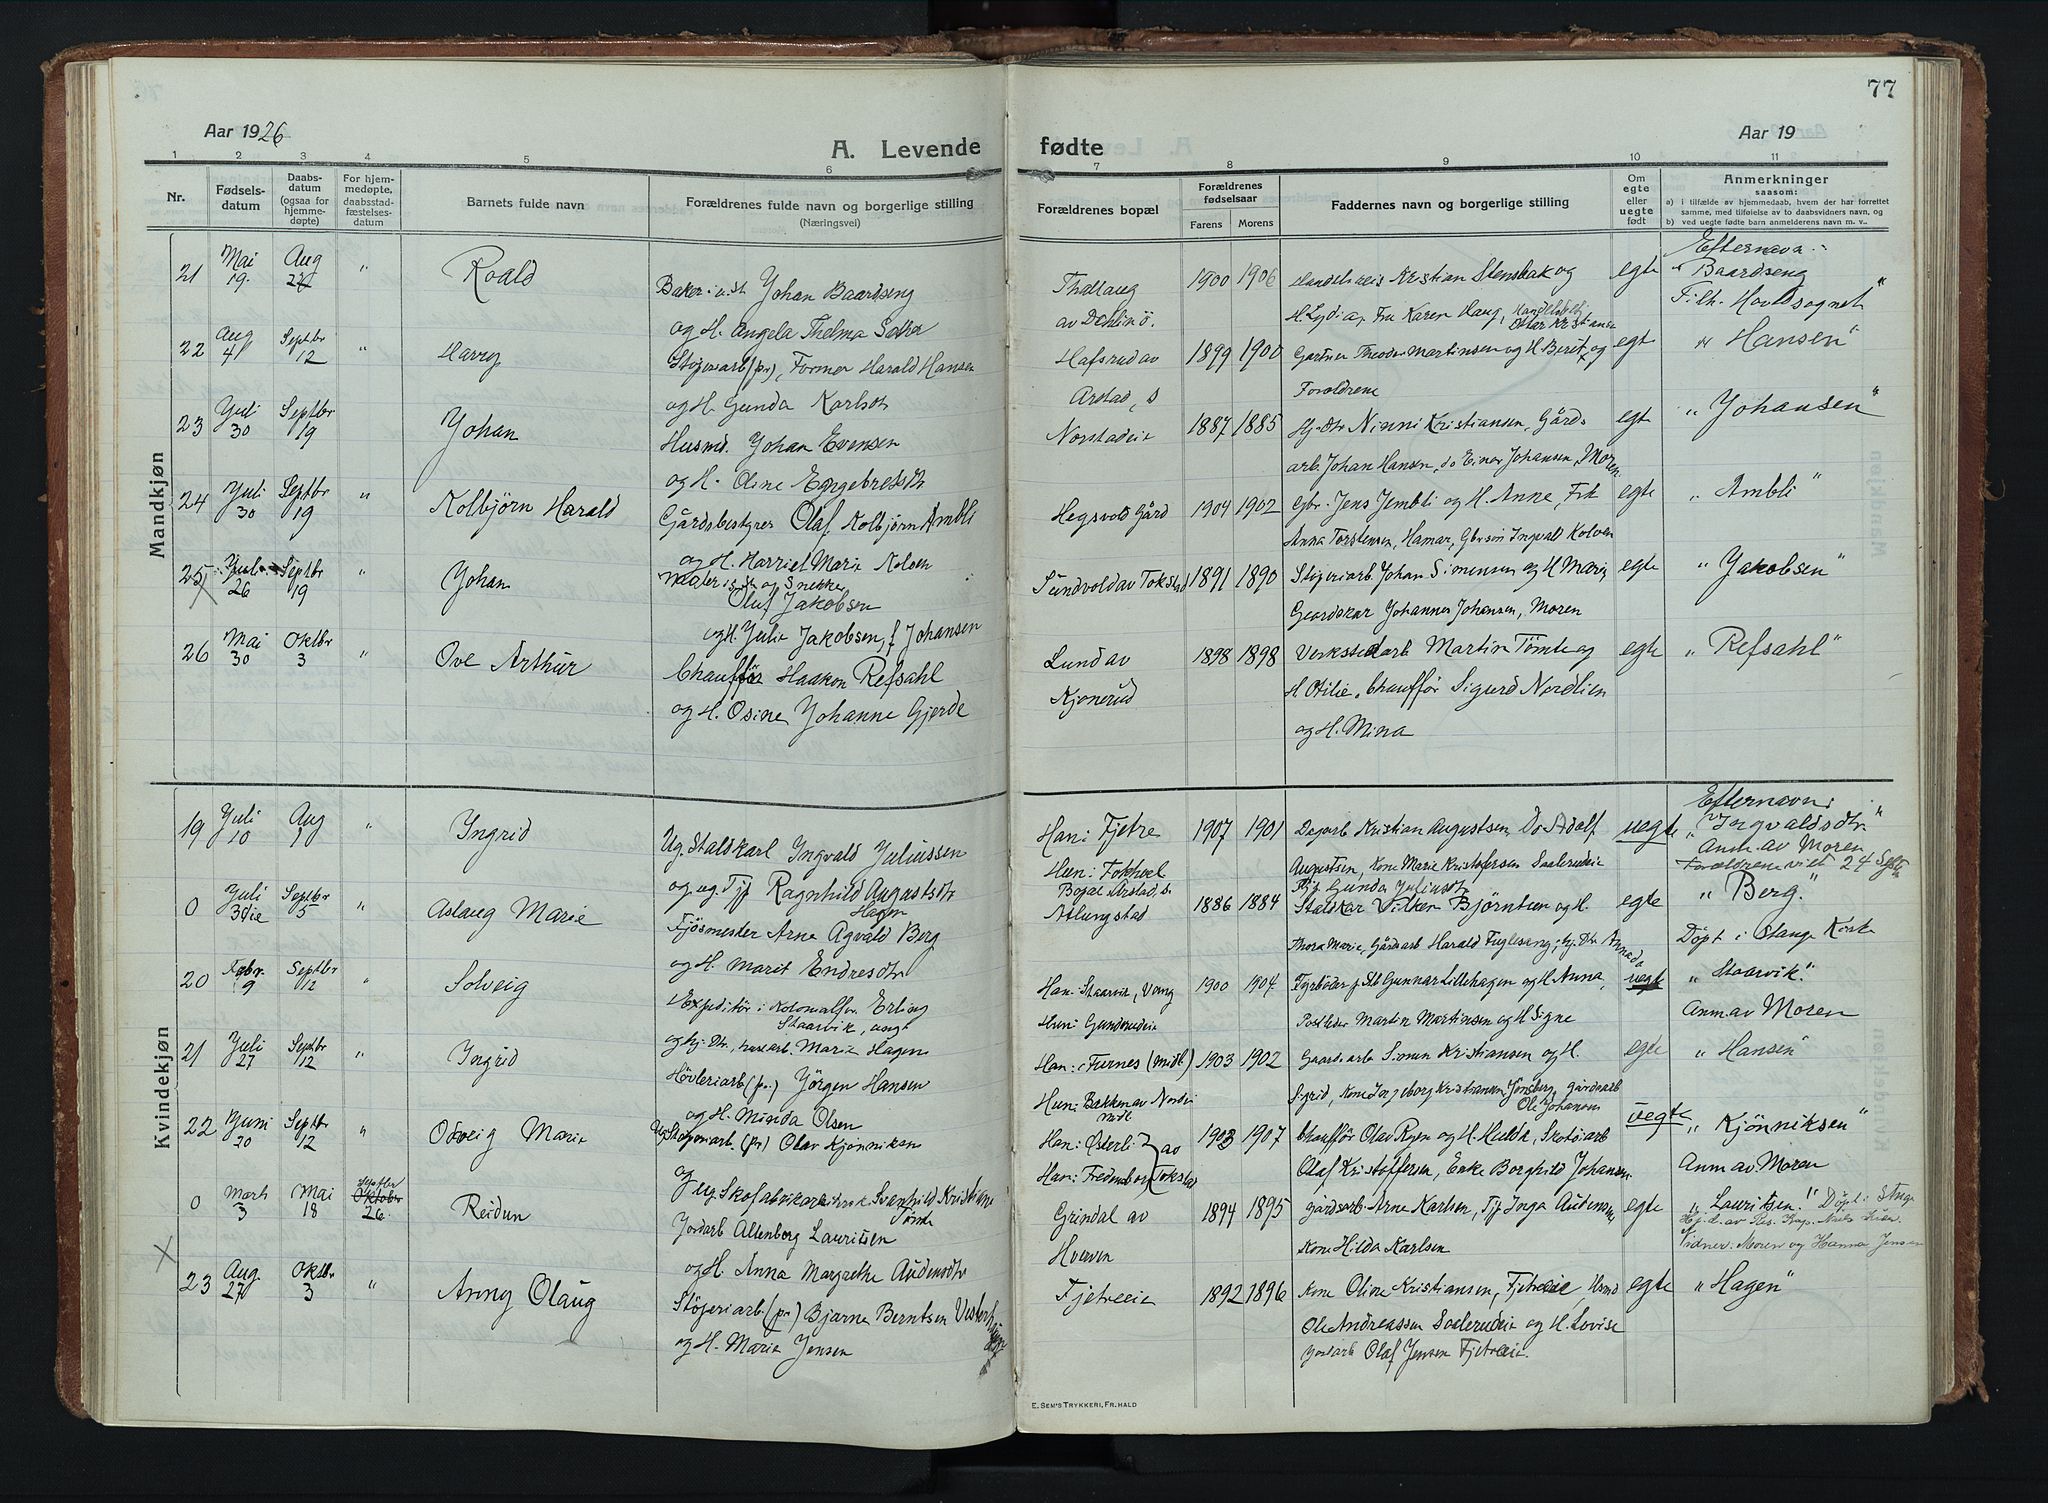 77
Aar 1926
A. Levende fødte
Aar 19
1 2 3 4 5 6 7 8 9 10 11
Nr.
Fødsels-
datum
Daabs-
datum
(ogsaa for
hjemme-
døpte)
For hjem-
medøpte,
daabsstad-
fæstelses-
datum
Barnets fulde navn
Forældrenes fulde navn og borgerlige stilling
(Næringsvei)
Forældrenes bopæl
Forældrenes
fødselsaar
Farens Morens
Faddernes navn og borgerlige stilling
Om
egte
eller
uegte
født
Anmerkninger
saasom:
a) i tilfælde av hjemmedaab, hvem der har forrettet
samme, med tilføielse av to daabsvidners navn, og
b) ved uegte fødte barn anmelderens navn m. v..
Mandkjøn
21 Mai 19. Aug " Roald
Johan Baardseng
og H. Angela Thelma
Thallaug
1900 1906
Kristian Stensbak og
H. Lydia, Fru Karen Haug,
egte
Efternavn:
" Baardseng
22 Aug 4 Septbr 12 " Harry
Støperiarb (pr), Former Harald Hansen
og H. Gunda
Hafsrud av
Arstad, s
1899 1900
Gartner Theodor Martinsen og H. Berit, og
Foreldrene
egt
" Hansen"
23 Juli 30 Septbr 19 Johan
Husmd. Johan Evensen
og H. Oline Engebretsdtr
Norstadeie
1887 1885
Hj. dtr Ninni Kristiansen, Gårds
arb. Johan Hansen, do Einar Johansen, Moren
egt
" Johansen"
24 Juli 30 Septbr 19 " Kolbjørn Harald
Gårdsbestyrer Olaf Kolbjørn Ambli
og H. Harriet Marie
Hegsvold Gård
1904 1902
Gbr. Jens Jembli og H. Anne, Frk
Anna Torstensen, Hamar, Gbr.søn Ingvald
egte
" Ambli"
25 Juli 26 Septbr 19 " Johan
Oluf Jakobsen
og H. Julie Jakobsen, f Johansen
Sundvold av Tokstad
1891 1890
Støperiarb Johan Simensen og H Marie
Johannes Johansen, Moren
egte
" Jakobsen"
26 Mai 30 Oktbr 3 " Ove Arthur
Chauffør Haakon Refsahl
og H. Osine Johanne Gjerde
Lund av
Kjonerud
1898 1898
Verkstedarb Martin Tømte og
H Otilie, Chauffør Sigurd Nordlien
og H. Mina
egte
" Refsahl"
Kvindekjøn
19 Juli 10 Aug 1 " Ingrid
Ug. Staldkarl Ingvald Juliussen
og ug Tjp Ragnhild Augustsdtr
Han: Fjetre
1907 1901
Dagarb Kristian Augustsen Do Adolf
Augustsen, Kone Marie Kristofersen Saalerudeie
Tjp Gunda Juliusdtr
uegte
Efternavn:
" Ingvaldsdtr"
Anm. av Moren
0 Juli Septbr 5 " Aslaug Marie
Hagen
Fjøsmester Arne Agvald Berg
og H. Marit Endresdtr
Atlungstad
1886 1884
Bjørntsen og H.
Thora Marie, Gårdsarb Harald Fuglesang,
egte
" Berg."
Døpt i Stange Kirke
20 Febr 9 Septbr 12 " Solveig
Expeditør i Kolonialfor. Erling
Staarvik, ungk
og hj. Dtr, Marie Hagen
Han: Staarvik, Vang
Hun: Gunderudeie
1900 1904
Gunnar Lillehagen og H Anna,
Martin Martinsen og H Signe
uegte
" Staarvik."
Anm av Moren
21 Juli 27 Septbr 12 " Ingrid
Høvleriarb (pr.) Jörgen Hansen
og H. Minda Olsen
Han: i Furnes (midl)
Hun: Bækken av Nordvi
midl
1903 1902
Gaardsarb Simen Kristiansen og H.
Sigrid, Kone Ingeborg Kristiansen, Jønsberg, gårdsarb
Ole Johansen
egte
" Hansen"
22 Juni 20 Septbr 12 " Odveig Marie
Ug Støperiarb. (pr) Olav Kjønniksen
Svanhild Kristians
Han: Østerli
av
Tokstad
1903 1907
Chauffør Olav Ryen og H. Hulda, Skotøiarb
Olaf Kristoffersen, Enke Borghild Johansen
uegte
" Kjønniksen"
Anm av Moren
0 Marts 3 Mai 18 Septbr Oktober 26 Reidun
Jordarb Altenborg Lauritsen
og H. Anna Margrethe Audensdtr
Grindal av
Hverven
1894 1895
gårdsarb Arne Karlsen, Tjp Inga Audensen,
Kone Hilda Karlsen
egte
" Lauritsen." Døpt i Stange
Vidner: Moren og Hanna Jensen
23 Aug. 27 Oktbr 3 " Anny Olaug
Støperiarb (pr) Bjarne Berntsen
og H. Marie Jensen
Fjetreeie
1892 1896
Kone Oline Kristiansen, Fjetreeie, Husmd
Ole Andreassen Saalerudeie og H. Lovise
Jordarb Olaf Jensen Fjetreeie.
egte
" Hagen"
E. SEM'S TRYKKERI, FR. HALD